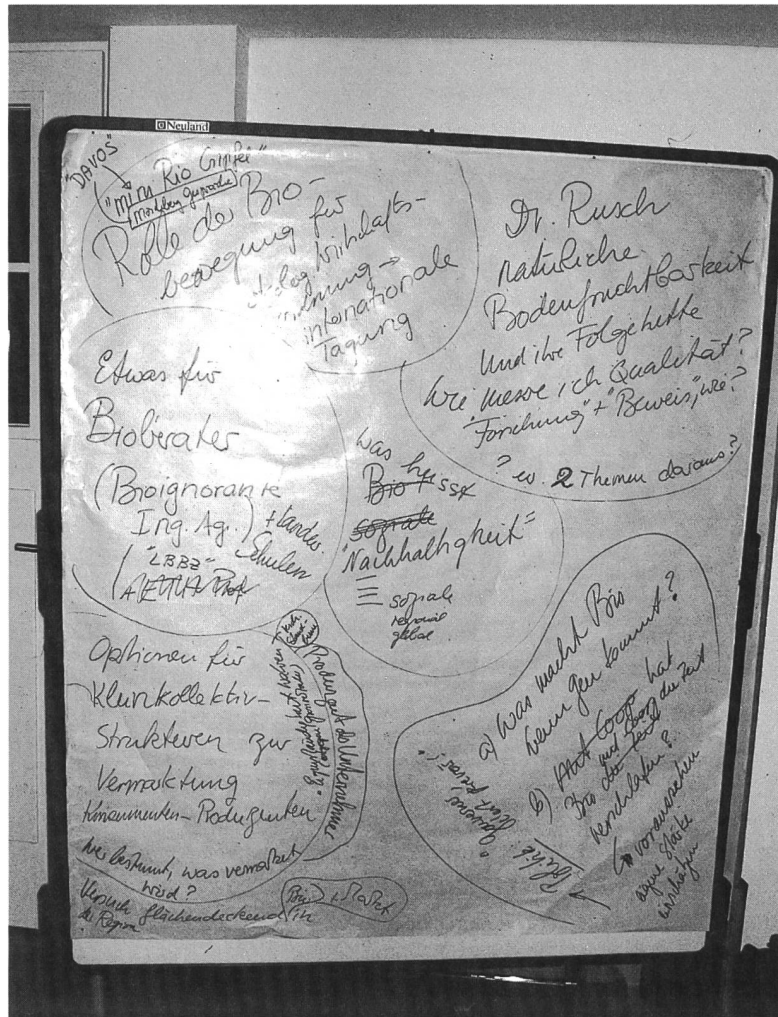 Neuland
"DAVOS"
"mini Rio Gipfel"
Möschberg Gespräche
Rolle der Bio-
bewegung für
ökolog Wirtschafts-
ordnung →
internationale
Tagung
Dr. Rusch
natürliche
Bodenfruchtbarkeit
und ihre Folgekette
Wie messe ich Qualität?
"Forschung" + "Beweis", wie?
? ev. 2 Themen daraus?
Etwas für
Bioberater
(Bioignorante
Ing. Ag.) + Landw.
Schulen
"LBBZ"
was heisst
Bio +
soziale
"Nachhaltigkeit"
soziale
regional
global
Optionen für
Kleinkollektiv-
Strukturen zur
Vermarktung
Konsumenten-Produzenten
wer bestimmt, was vermarktet
wird?
Produzent als Unternehmer
Versuch flächendeckend in
der Region
Bio + Markt
a) Was macht Bio
wenn gen kommt?
b) Hat Coop hat
Bio die Zeit
verschlafen?
voraussehen
eigene Stärke
einschätzen
Politik